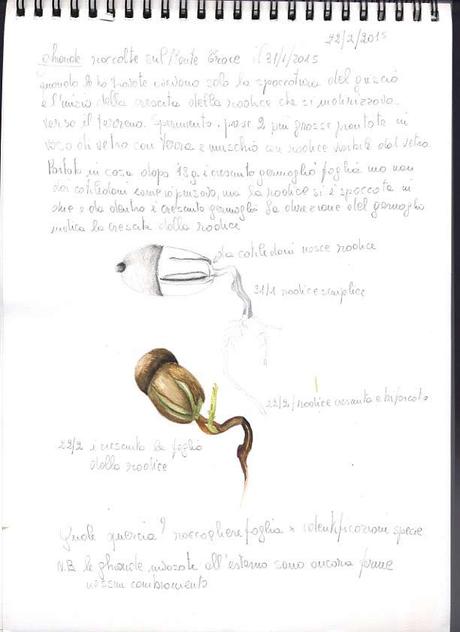 22/2/2015
ghiande raccolte sul Monte Croce il 31/1/2015
quando le ho trovate avevano solo la spaccatura del guscio
e l'inizio della crescita della radice che si indirizzava
verso il terreno. Esperimento. prese 2 più grosse piantate in
vaso di vetro con terra e muschio con radice visibile dal vetro
Portate in casa dopo 13g. è cresciuto germoglio foglia ma non
dai cotiledoni come si pensava, ma la radice si è spaccata in
due e da dentro è cresciuto germoglio la direzione del germoglio
imita la crescita della radice
da cotiledoni nasce radice
31/1 radice semplice
22/2/ radice cresciuta e biforcata
22/2 è cresciuta la foglia
dalla radice
Quale quercia? raccogliere foglia x identificazioni specie
N.B le ghiande all'esterno sono ancora ferme
nessun cambiamento